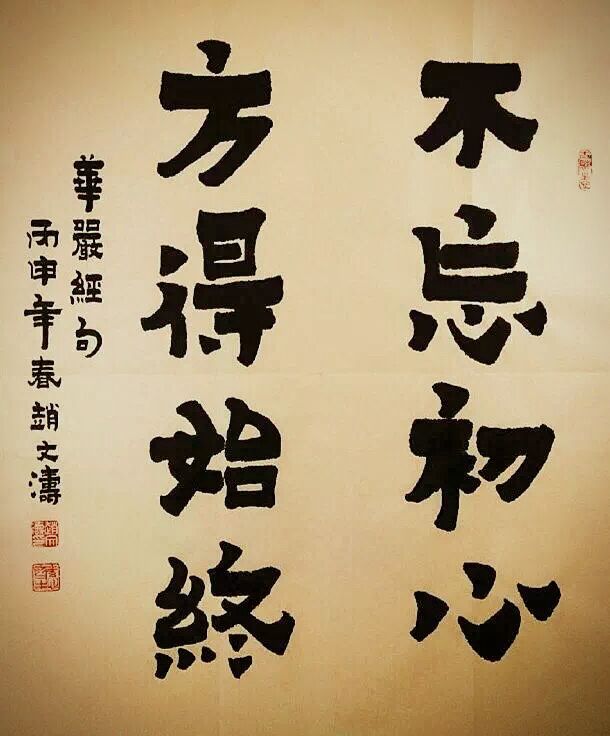 不忘初心
方得始終
華嚴經句
丙申年春趙文濤